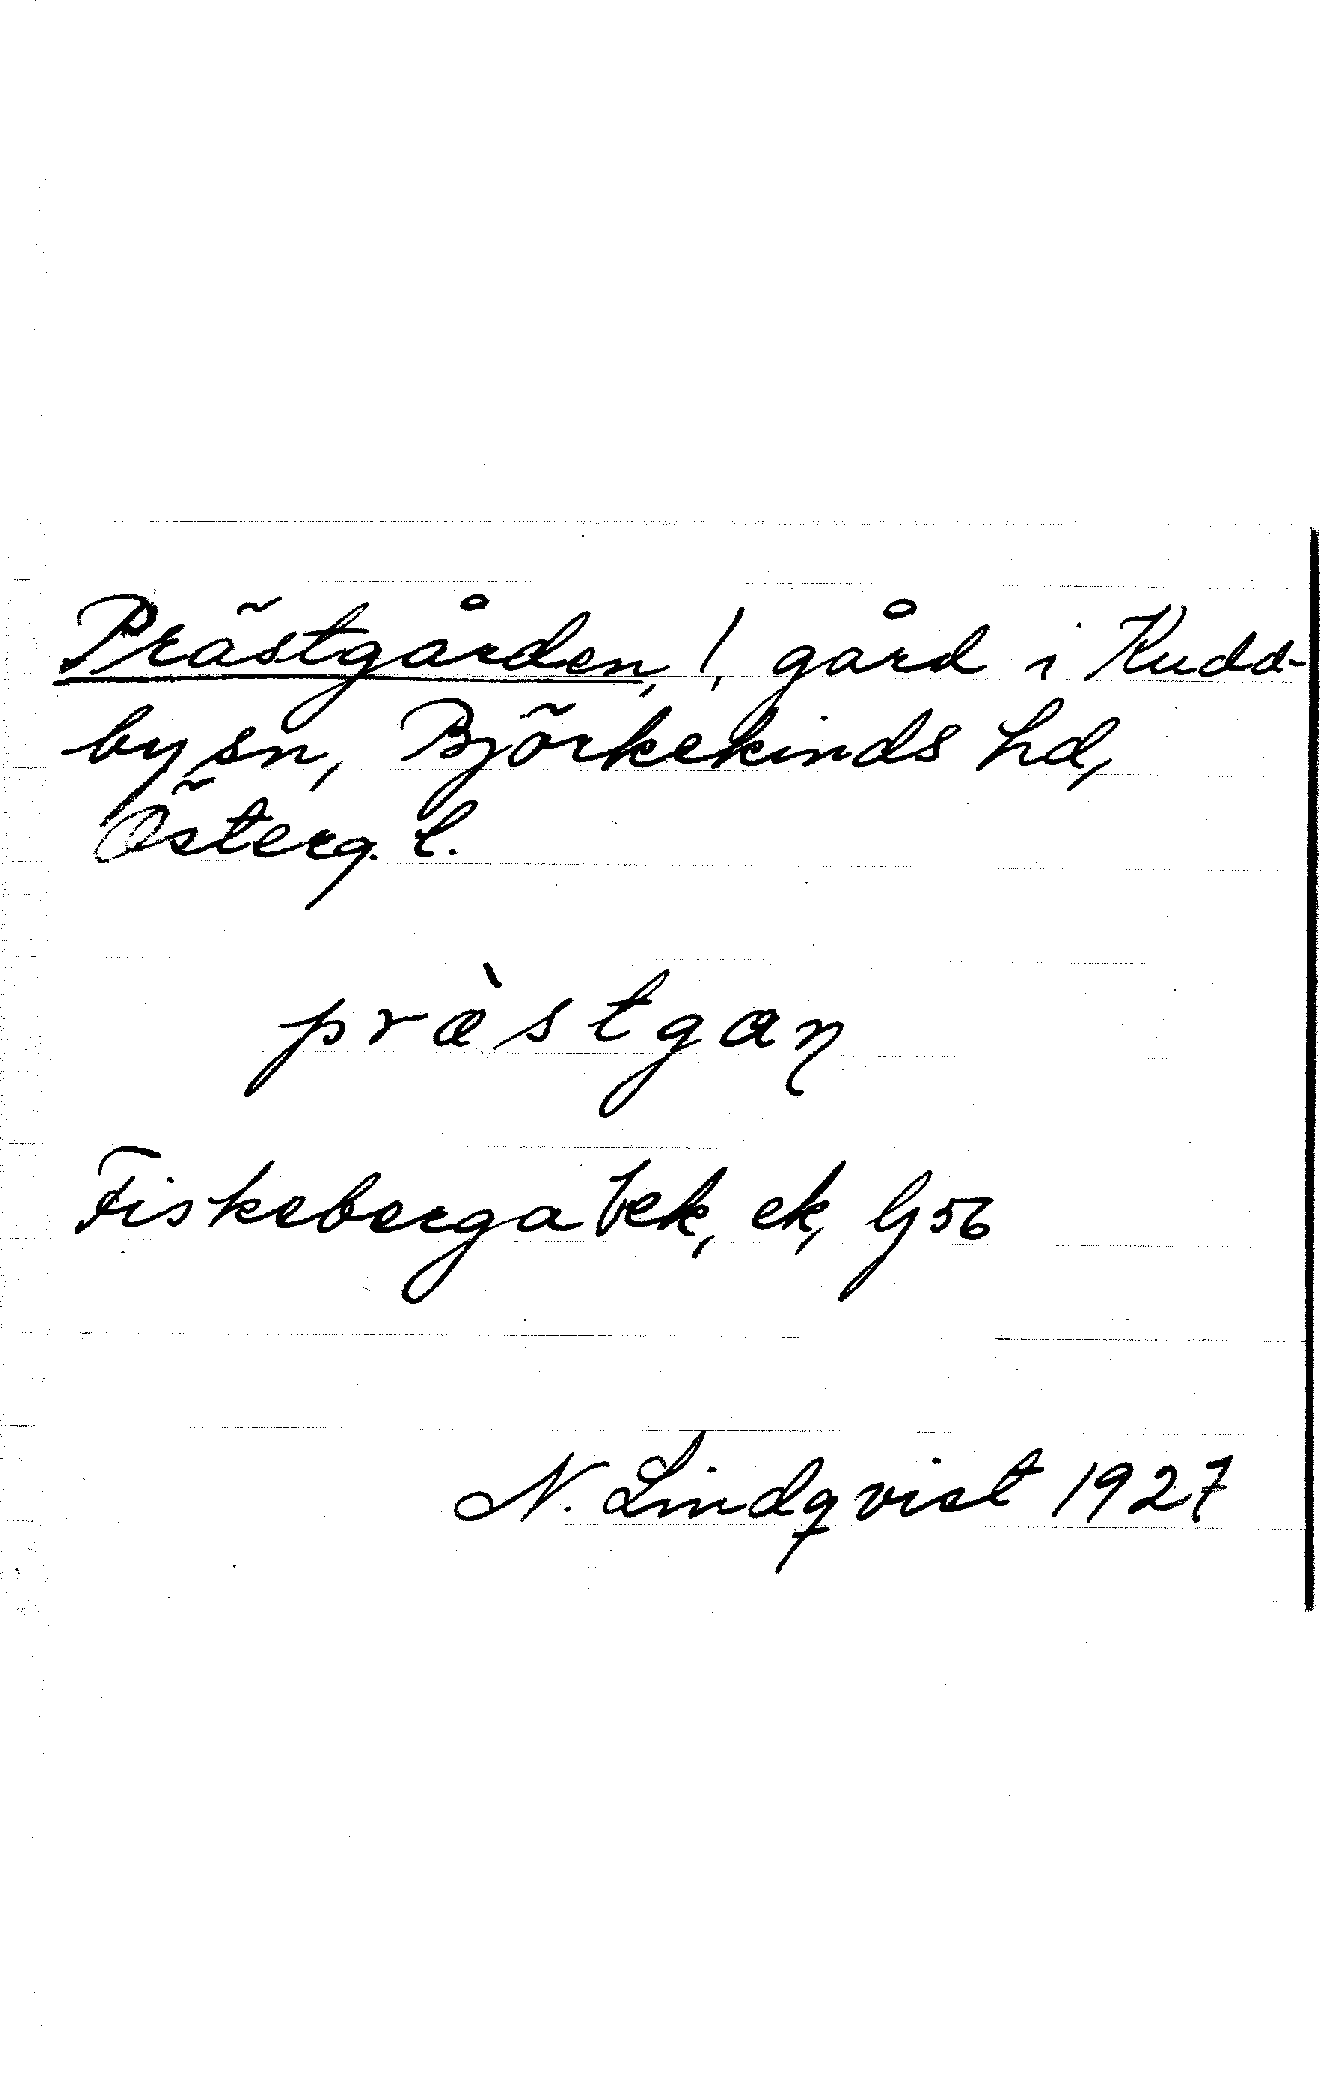 Prästgården, !, gård i Kudd-
by sn, Björkekinds hd,
Österg. l.
præ̀stgaη
Fiskeberga bek, ek, G 56
N. Lindqvist 1927